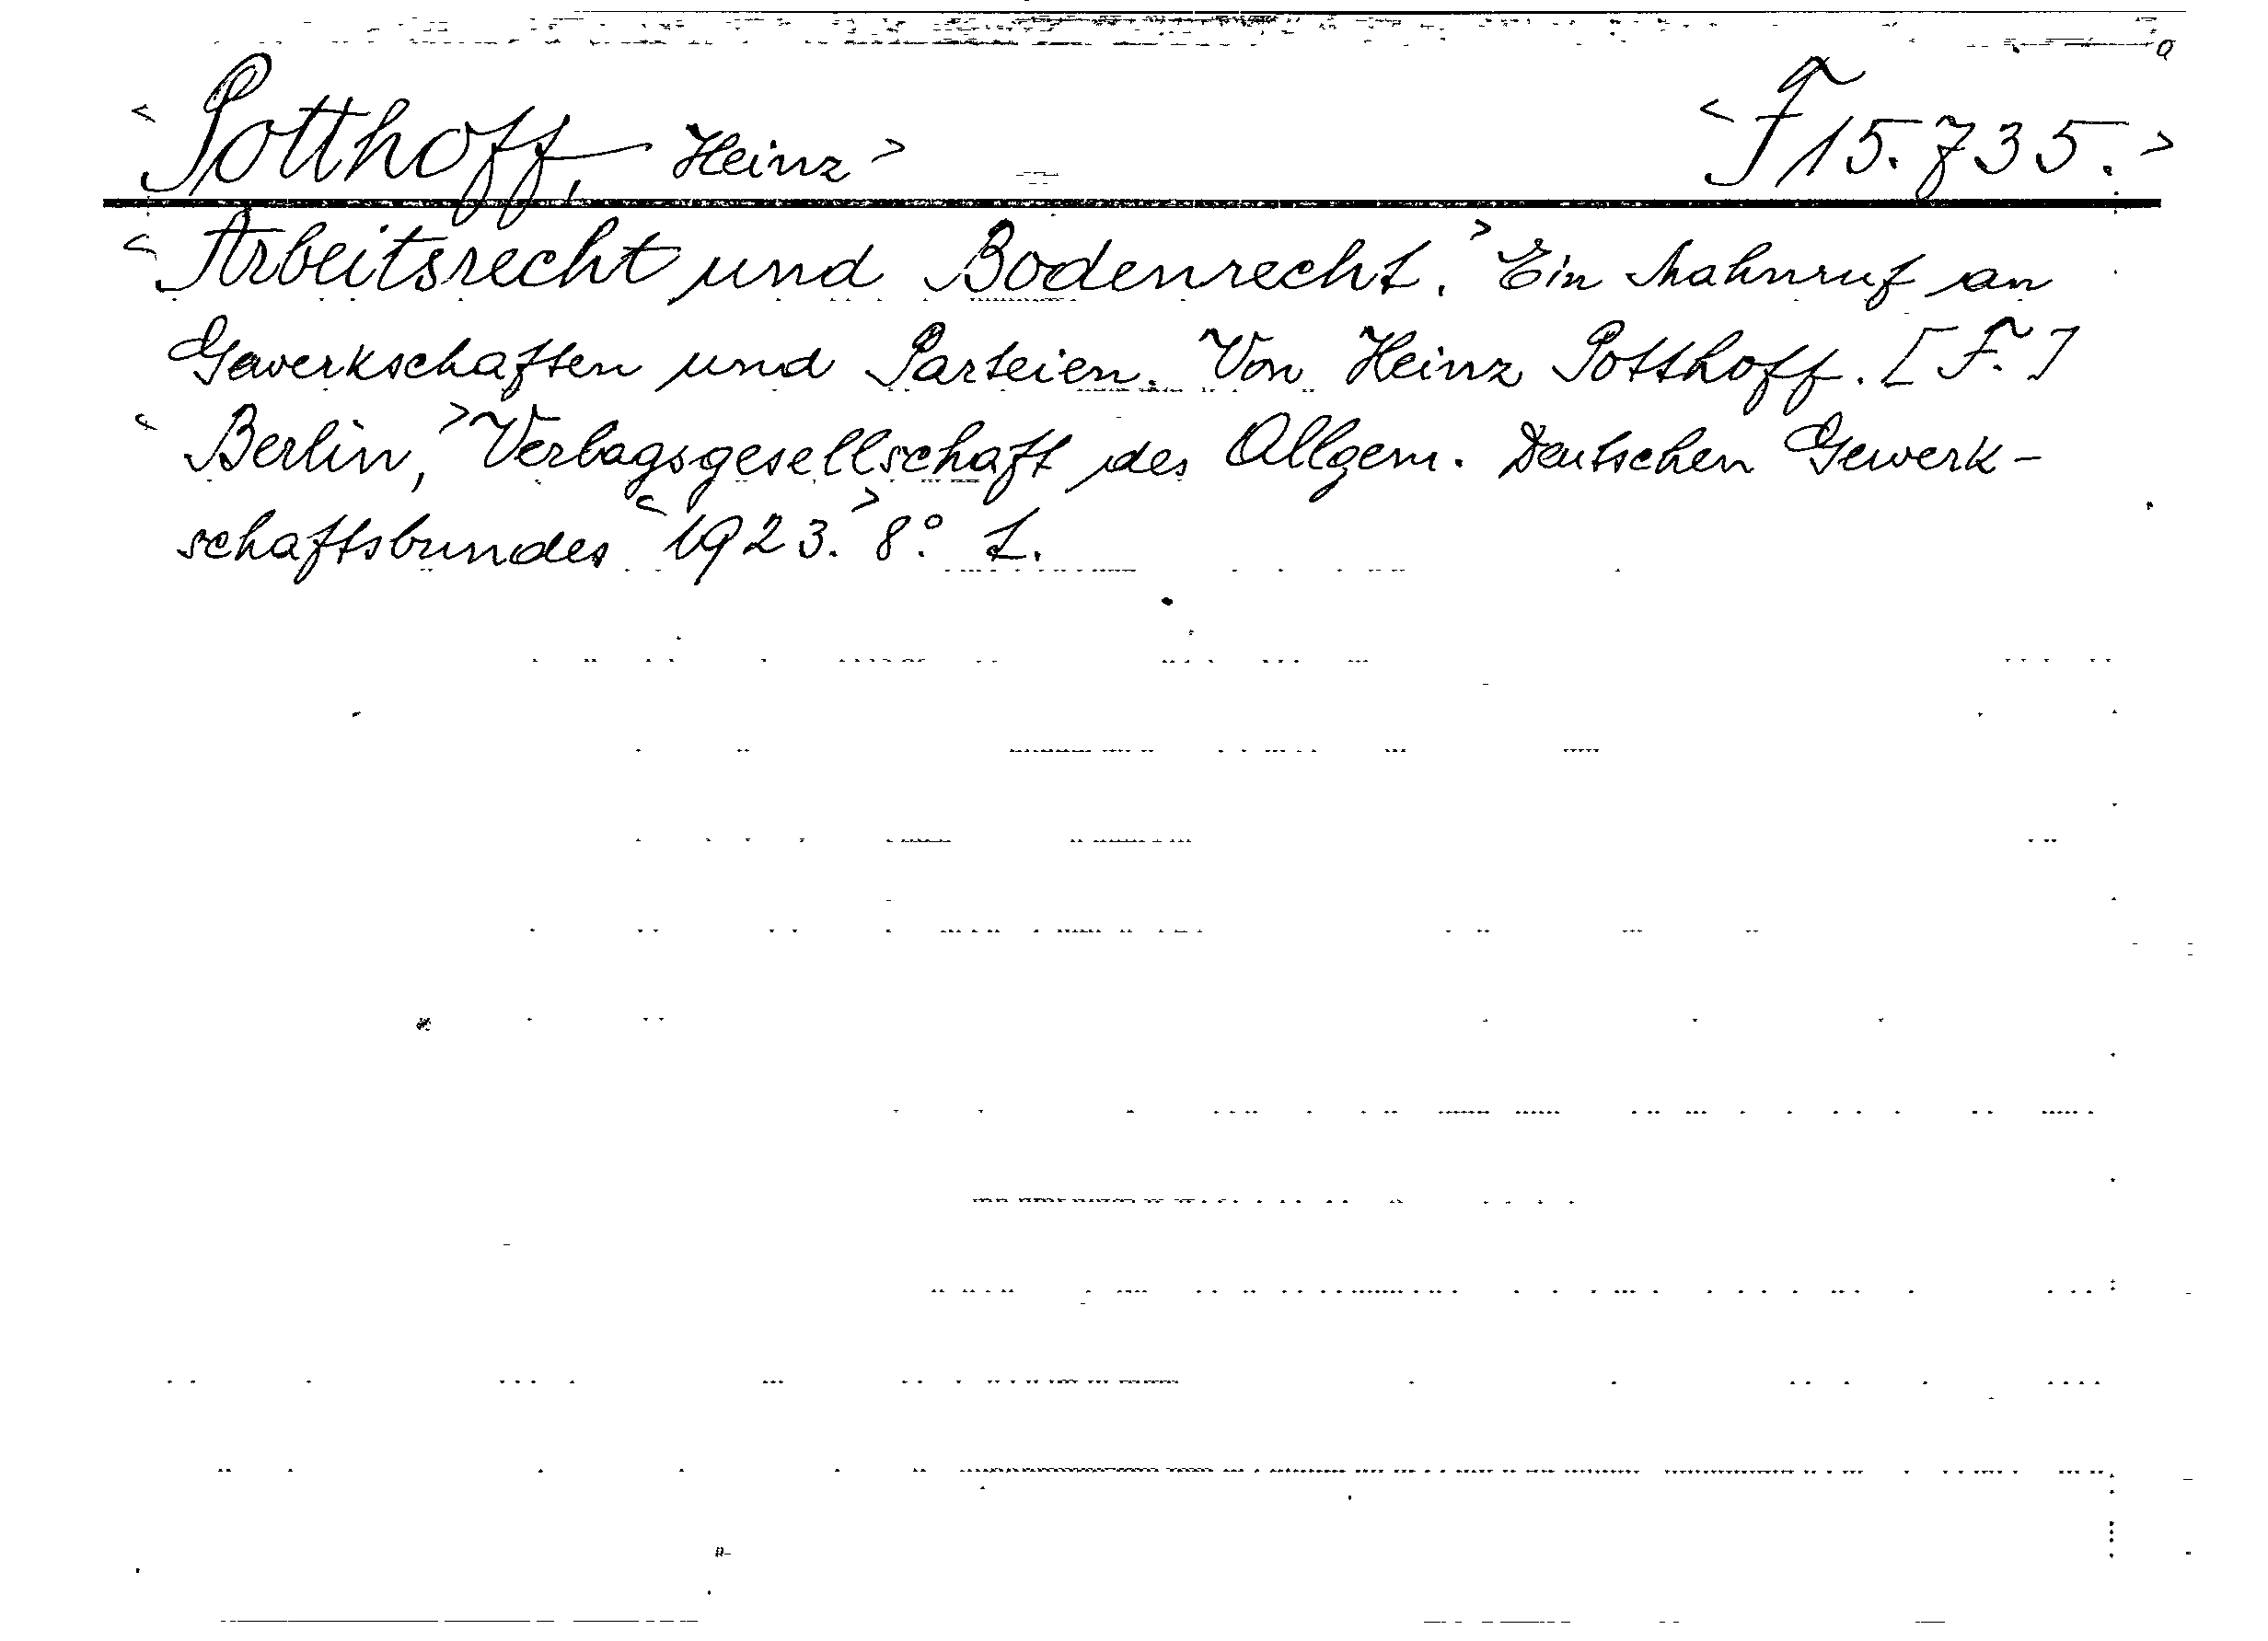 <Potthoff, Heinz> <F 15.735.>
<Arbeitsrecht und Bodenrecht.> Ein Mahnruf an
Gewerkschaften und Parteien. Von Heinz Potthoff. [F.]
<Berlin,> Verlagsgesellschaft des Allgem. Deutschen Gewerk-
schaftsbundes <1923.> 8° L.